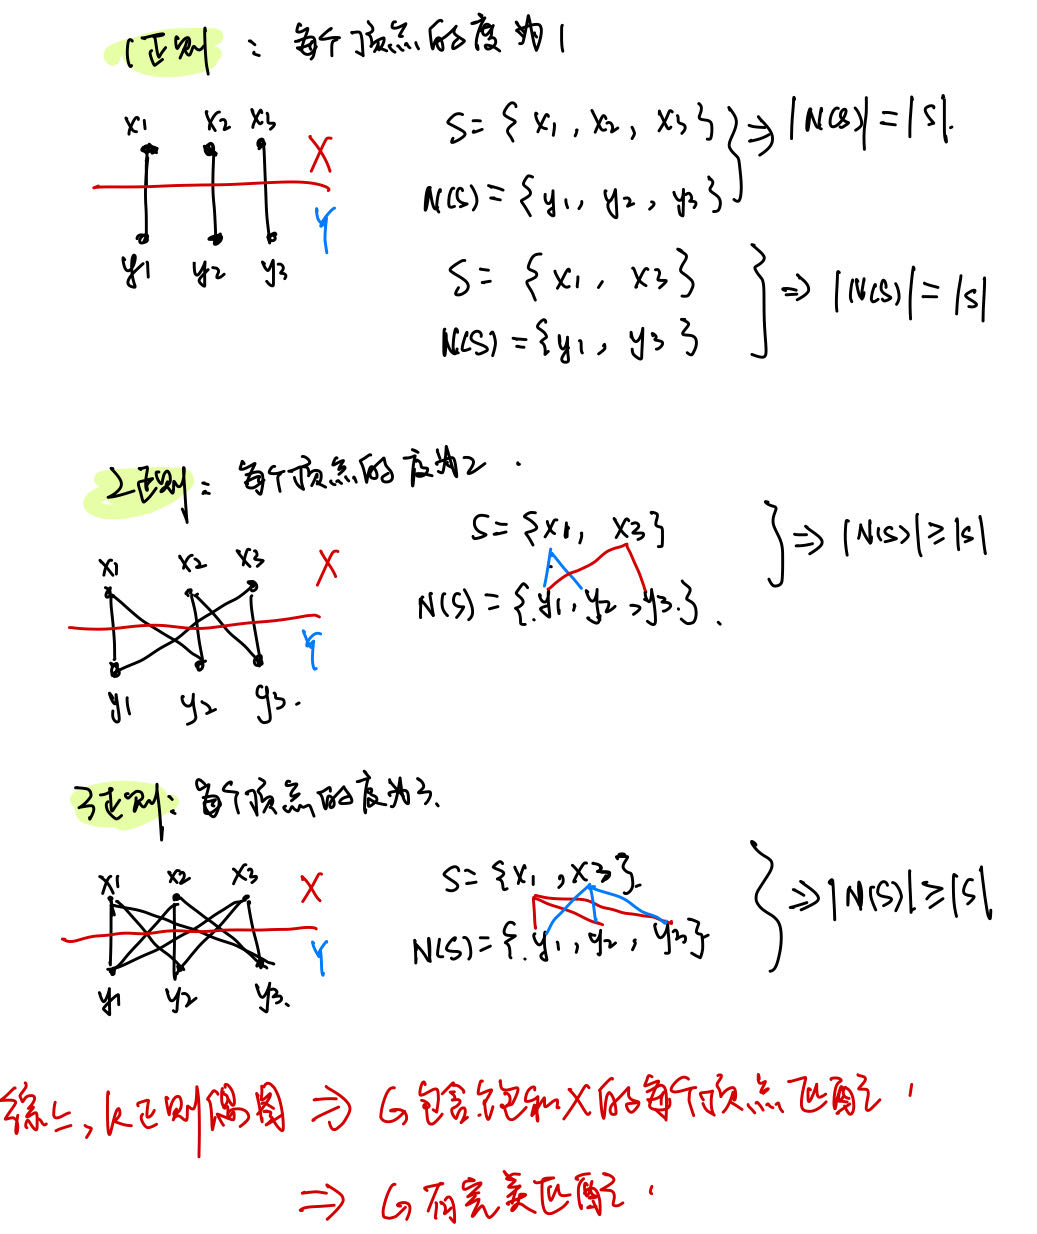 1正则：每个顶点的度为1
x1 x2 x3
X
Y
y1 y2 y3
S={x1, x2, x3}
N(S)={y1, y2, y3}
⇒ |N(S)|=|S|.
S={x1, x3}
N(S)={y1, y3}
⇒ |N(S)|=|S|
2正则：每个顶点的度为2.
x1 x2 x3
X
Y
y1 y2 y3.
S={x1, x3}
N(S)={y1, y2, y3}.
⇒ |N(S)|≥|S|
3正则：每个顶点的度为3.
x1 x2 x3
X
Y
y1 y2 y3.
S={x1, x3}.
N(S)={y1, y2, y3}
⇒ |N(S)|≥|S|
综上, k正则偶图 ⇒ G包含饱和X的每个顶点匹配.
⇒ G有完美匹配.